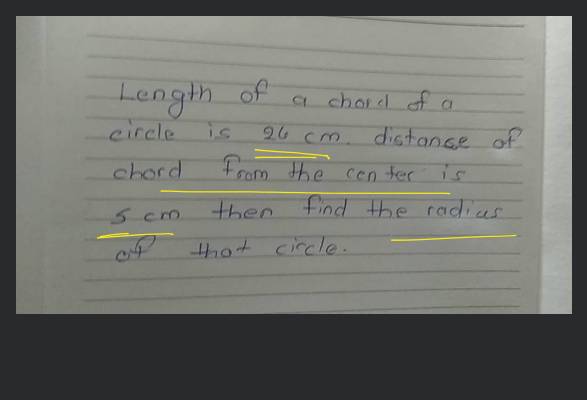 Length of a chord of a
circle is 24 cm. distance of
chord from the center is
5 cm then find the radius
of that circle.